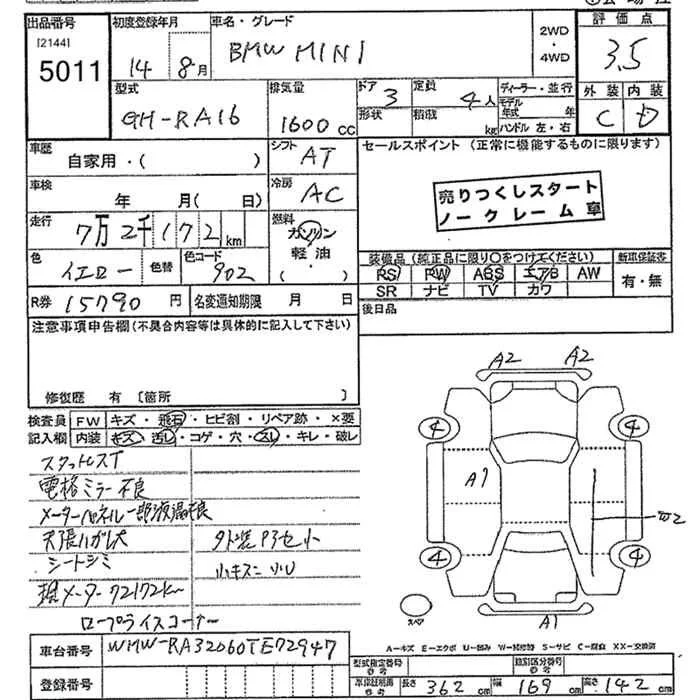 出品番号
[2144]
5011
初度登録年月
14 8月
車名・グレード
BMW MINI
2WD
・
4WD
評価点
3.5
外装 内装
C D
型式
GH-RA16
排気量
1600cc
ドア
3
形状
定員
4人
積載
kg
ディーラー・並行
モデル年式 年
ハンドル 左・右
車歴
自家用・( )
シフト
AT
セールスポイント (正常に機能するものに限ります)
売りつくしスタート
ノークレーム車
車検
年 月( 日)
冷房
AC
走行
7万2千172km
燃料
ガソリン
軽油
・
( )
色
イエロー
色替
色コード
902
装備品(純正品に限り○をつけてください)
新車保証書
RS PW ABS エアB AW
SR ナビ TV カワ
有・無
R券 15790円
名変通知期限 月 日
後日品
注意事項申告欄(不具合内容等は具体的に記入して下さい)
修復歴 有 [箇所 ]
検査員
記入欄
FW キズ・飛石・ヒビ割・リペア跡・×要
内装 キズ・汚レ・コゲ・穴・スレ・キレ・破レ
スタットレスT
電格ミラー不良
メーターパネル一部液晶不良
天張ハガレ大
外装P3セット
シートシミ
小キズ ヘコ
現メーター72172km
ロープライスコーナー
A2 A2
4 4
A1
4 4
スペア
A1
A=キズ E=エクボ U=凹み W=補修跡 S=サビ C=腐食 XX=交換済
車台番号 WMW-RA32060TE72947
登録番号
型式指定番号
参考
類別区分番号
参考
車検証明書
参考
長さ 362cm
幅 169cm
高さ 142cm